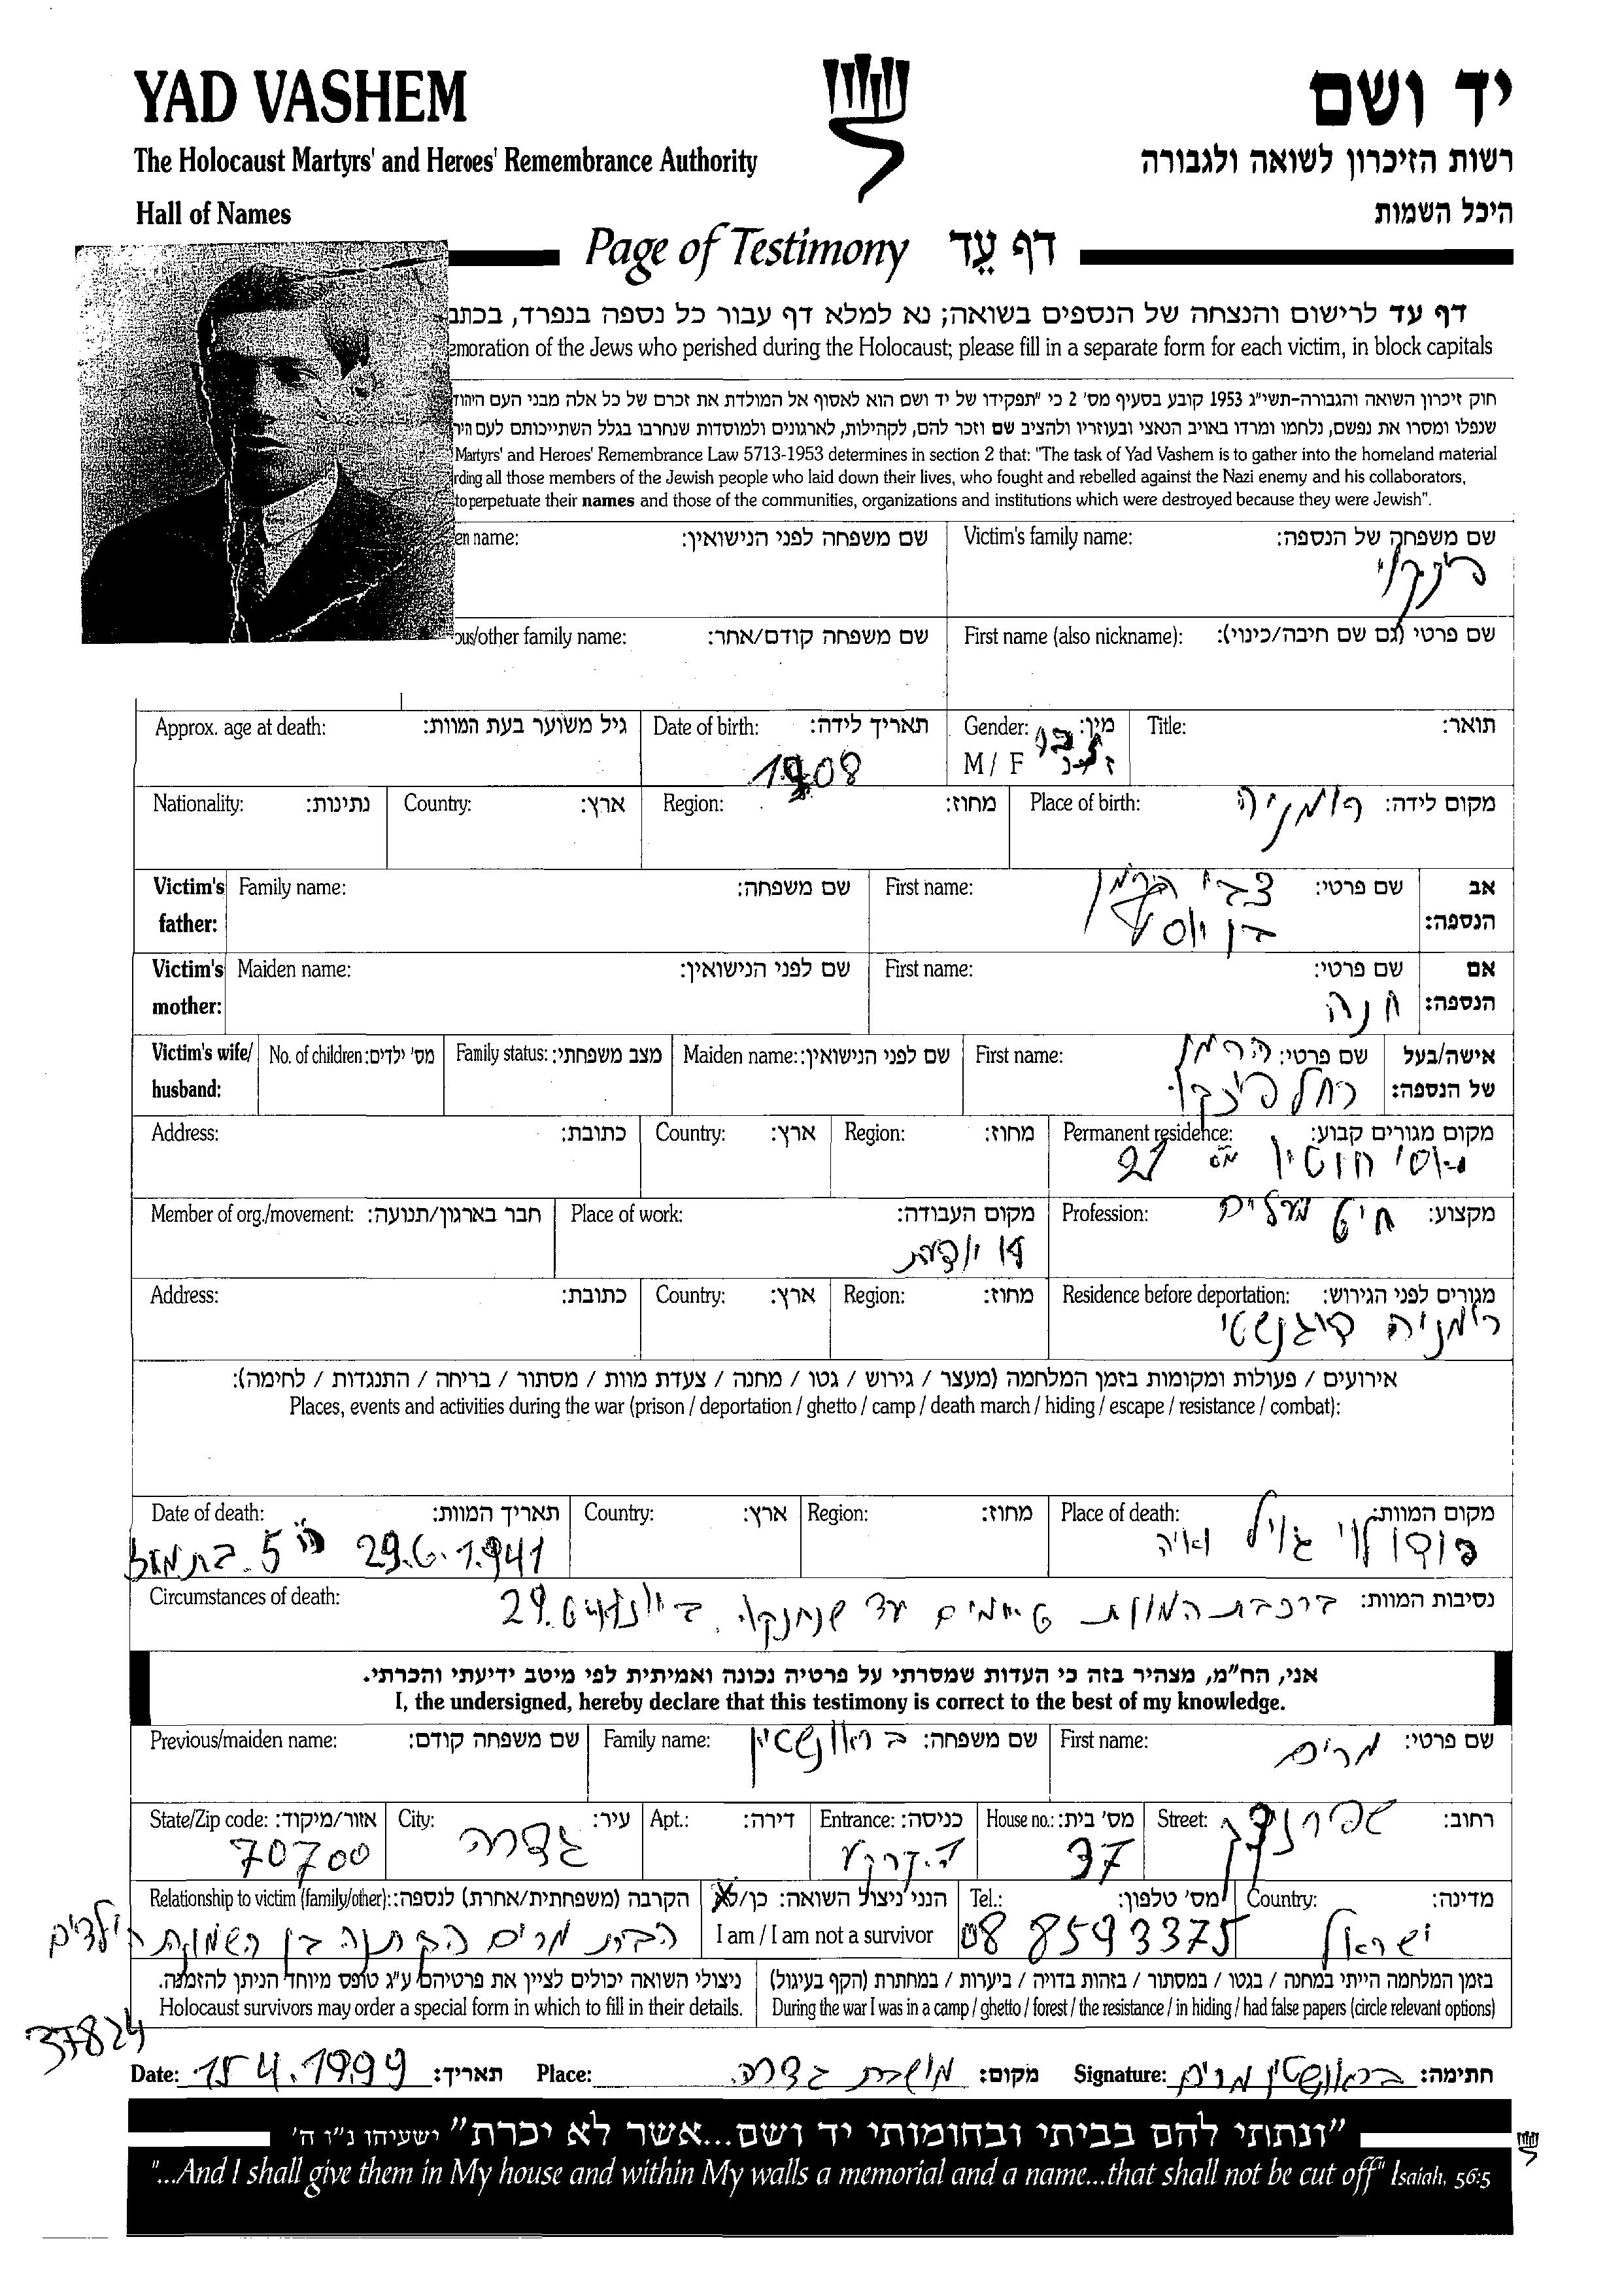 YAD VASHEM
יד ושם
The Holocaust Martyrs' and Heroes' Remembrance Authority
רשות הזיכרון לשואה ולגבורה
Hall of Names
היכל השמות
Page of Testimony דף עֵד
דף עד לרישום והנצחה של הנספים בשואה; נא למלא דף עבור כל נספה בנפרד, בכתב
emoration of the Jews who perished during the Holocaust; please fill in a separate form for each victim, in block capitals
חוק זיכרון השואה והגבורה-תשי"ג 1953 קובע בסעיף מס' 2 כי "תפקידו של יד ושם הוא לאסוף אל המולדת את זכרם של כל אלה מבני העם היהוד
שנפלו ומסרו את נפשם, נלחמו ומרדו באויב הנאצי ובעוזריו ולהציב שם וזכר להם, לקהילות, לארגונים ולמוסדות שנחרבו בגלל השתייכותם לעם היה
Martyrs' and Heroes' Remembrance Law 5713-1953 determines in section 2 that: "The task of Yad Vashem is to gather into the homeland material
rding all those members of the Jewish people who laid down their lives, who fought and rebelled against the Nazi enemy and his collaborators,
to perpetuate their names and those of the communities, organizations and institutions which were destroyed because they were Jewish".
שם משפחה של הנספה: Victim's family name:
שם משפחה לפני הנישואין: en name:
שם פרטי (גם שם חיבה/כינוי): First name (also nickname):
שם משפחה קודם/אחר: ous/other family name:
תואר: Title:
מין: Gender: M / F ז / נ
תאריך לידה: Date of birth: 1908
גיל משוער בעת המוות: Approx. age at death:
מקום לידה: Place of birth: רומניה
מחוז: Region:
ארץ: Country:
נתינות: Nationality:
אב הנספה: Victim's father:
שם פרטי: First name: צבי הרמן
בן יוסף
שם משפחה: Family name:
אם הנספה: Victim's mother:
שם פרטי: First name: חנה
שם לפני הנישואין: Maiden name:
אישה/בעל של הנספה: Victim's wife/ husband:
שם פרטי: First name:
רחל
שם לפני הנישואין: Maiden name:
מצב משפחתי: Family status:
מס' ילדים: No. of children:
מקום מגורים קבוע: Permanent residence:
מס 21
מחוז: Region:
ארץ: Country:
כתובת: Address:
מקצוע: Profession: חיט
מקום העבודה: Place of work:
חבר בארגון/תנועה: Member of org./movement:
מגורים לפני הגירוש: Residence before deportation:
רומניה
מחוז: Region:
ארץ: Country:
כתובת: Address:
אירועים / פעולות ומקומות בזמן המלחמה (מעצר / גירוש / גטו / מחנה / צעדת מוות / מסתור / בריחה / התנגדות / לחימה):
Places, events and activities during the war (prison / deportation / ghetto / camp / death march / hiding / escape / resistance / combat):
מקום המוות: Place of death:
מחוז: Region:
ארץ: Country:
תאריך המוות: Date of death:
29.6.1941 ה 5 בתמוז
נסיבות המוות: Circumstances of death: ברכבת המוות עד שנחנקו
אני, הח"מ, מצהיר בזה כי העדות שמסרתי על פרטיה נכונה ואמיתית לפי מיטב ידיעתי והכרתי.
I, the undersigned, hereby declare that this testimony is correct to the best of my knowledge.
שם פרטי: First name: מרים
שם משפחה: Family name: בראונשטיין
שם משפחה קודם: Previous/maiden name:
רחוב: Street:
מס' בית: House no.: 37
כניסה: Entrance:
דירה: Apt.:
עיר: City: גדרה
אזור/מיקוד: State/Zip code: 70700
מדינה: Country: ישראל
מס' טלפון: Tel.: 08 8593375
הנני ניצול השואה: כן/לא I am / I am not a survivor
הקרבה (משפחתית/אחרת) לנספה: Relationship to victim (family/other):
הבת מרים הקטנה בן השמונת הילדים
בזמן המלחמה הייתי במחנה / בגטו / במסתור / בזהות בדויה / ביערות / במחתרת (הקף בעיגול)
During the war I was in a camp / ghetto / forest / the resistance / in hiding / had false papers (circle relevant options)
ניצולי השואה יכולים לציין את פרטיהם ע"ג טופס מיוחד הניתן להזמנה.
Holocaust survivors may order a special form in which to fill in their details.
37824
חתימה: Signature: בראונשטיין מרים
מקום: Place: מושבת גדרה
תאריך: Date: 15 4.1999
"ונתתי להם בביתי ובחומותי יד ושם...אשר לא יכרת" ישעיהו נ"ו ה'
"...And I shall give them in My house and within My walls a memorial and a name...that shall not be cut off" Isaiah, 56:5